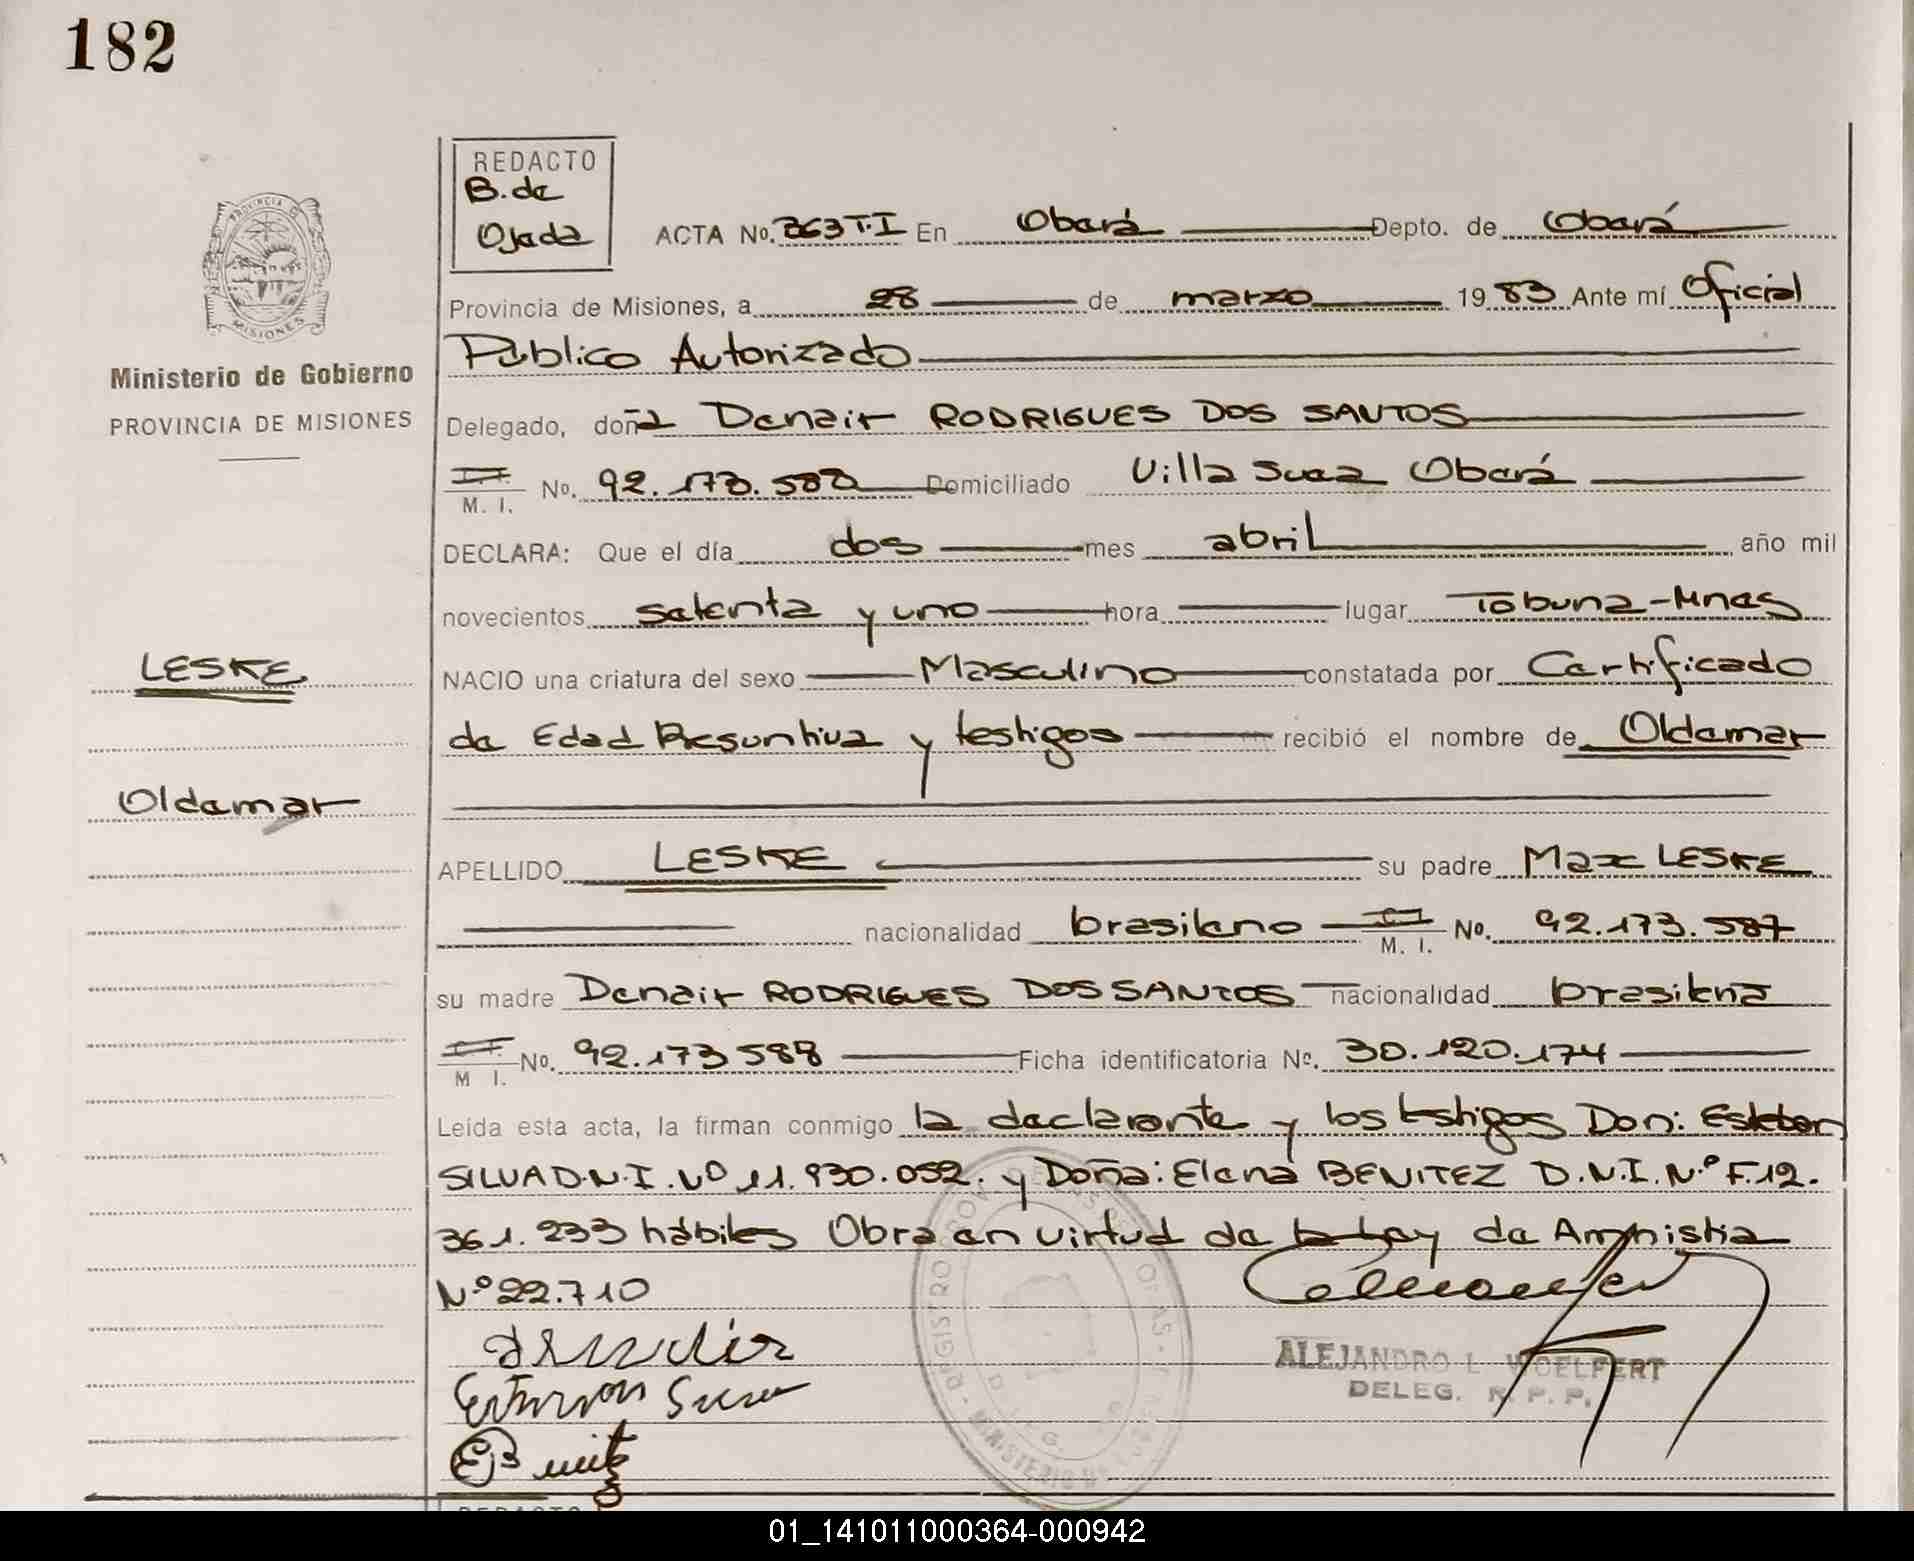 182
REDACTO
B. de
Ojeda
ACTA No. 363 T.I En Oberá Depto. de Oberá
Provincia de Misiones, a 28 de marzo 19 83 Ante mí Oficial
Público Autorizado
PROVINCIA DE
MISIONES
Ministerio de Gobierno
PROVINCIA DE MISIONES
Delegado, doña Denair RODRIGUES DOS SANTOS
M. I. No. 92.173.588 Domiciliado Villa Suea Oberá
DECLARA: Que el día dos mes abril año mil
novecientos setenta y uno hora lugar Tobuna-Mnes
LESKE
NACIO una criatura del sexo Masculino constatada por Certificado
de Edad Presuntiva y testigos recibió el nombre de Oldemar
Oldemar
APELLIDO LESKE su padre Max LESKE
nacionalidad brasileño C.I. M. I. No. 92.173.587
su madre Denair RODRIGUES DOS SANTOS nacionalidad brasileña
C.I. M I. No. 92.173 588 Ficha identificatoria No. 30.120.174
Leida esta acta, la firman conmigo la declarante y los testigos Don: Esteban
SILVA D.N.I. No 11.930.052. y Doña: Elena BENITEZ D.N.I. N.º F.12.
361.233 hábiles Obra en virtud de la Ley de Amnistia
N.º 22.710
ALEJANDRO L. WOELFERT
DELEG. R. P. P.
REDACTO
01_141011000364-000942